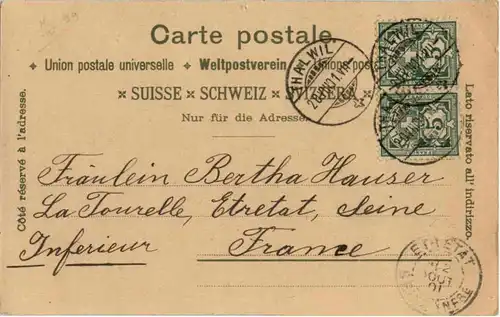 Carte postale.
Union postale universelle. Weltpostverein. Unione postale
SUISSE SCHWEIZ SVIZZERA
Nur für die Adresse.
Côté réservé à l'adresse.
Lato riservato all' indirizzo.
Fräulein Bertha Hauser
La Tourelle, Etretat, Seine
Inferieur France
THALWIL
THALWIL
5
5
ETRETAT